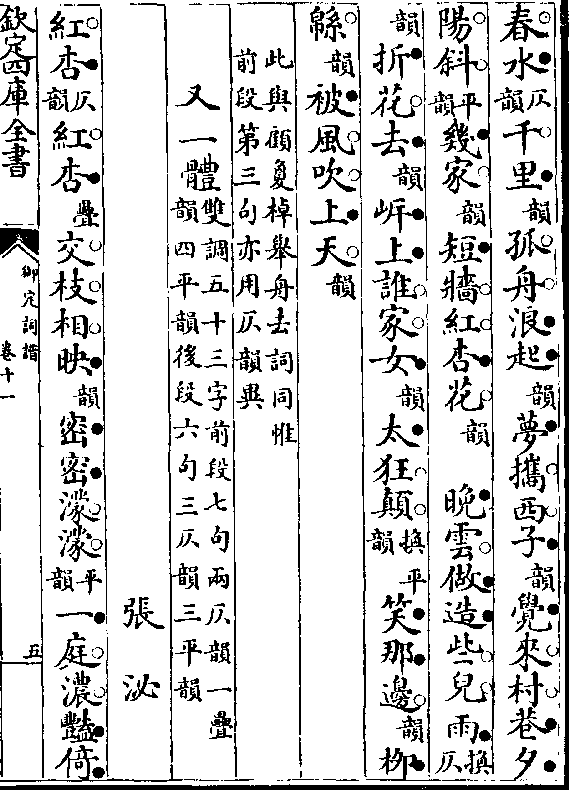 春水仄韻千里韻孤舟浪起韻夢攜西子韻覺來村巷夕
陽斜平韻幾家韻短牆紅杏花韻　晚雲做造些兒雨換仄
韻折花去韻岸上誰家女韻太狂顛換平韻笑那邊韻柳
緜韻被風吹上天韻
此與顧夐棹舉舟去詞同惟
前段第三句亦用仄韻異
又一體雙調五十三字前段七句兩仄韻一疊
韻四平韻後段六句三仄韻三平韻
張泌
紅杏仄韻紅杏疊交枝相映韻密密濛濛平韻一庭濃豔倚
欽定四庫全書
御定詞譜
卷十一
五